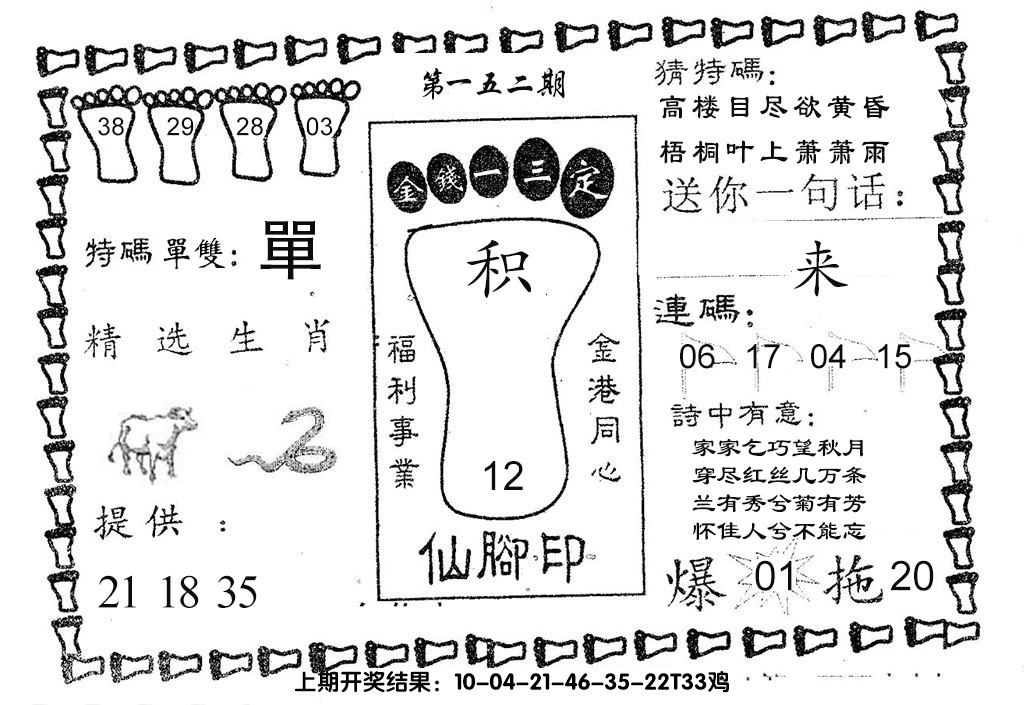 第一五二期
38 29 28 03
特碼單雙：單
精选生肖
提供：
21 18 35
金錢一三定
积
福利事業
金港同心
12
仙腳印
猜特碼：
高楼目尽欲黄昏
梧桐叶上萧萧雨
送你一句话：
来
連碼：
06 17 04 15
詩中有意：
家家乞巧望秋月
穿尽红丝几万条
兰有秀兮菊有芳
怀佳人兮不能忘
爆 01 拖 20
上期开奖结果：10-04-21-46-35-22T33鸡